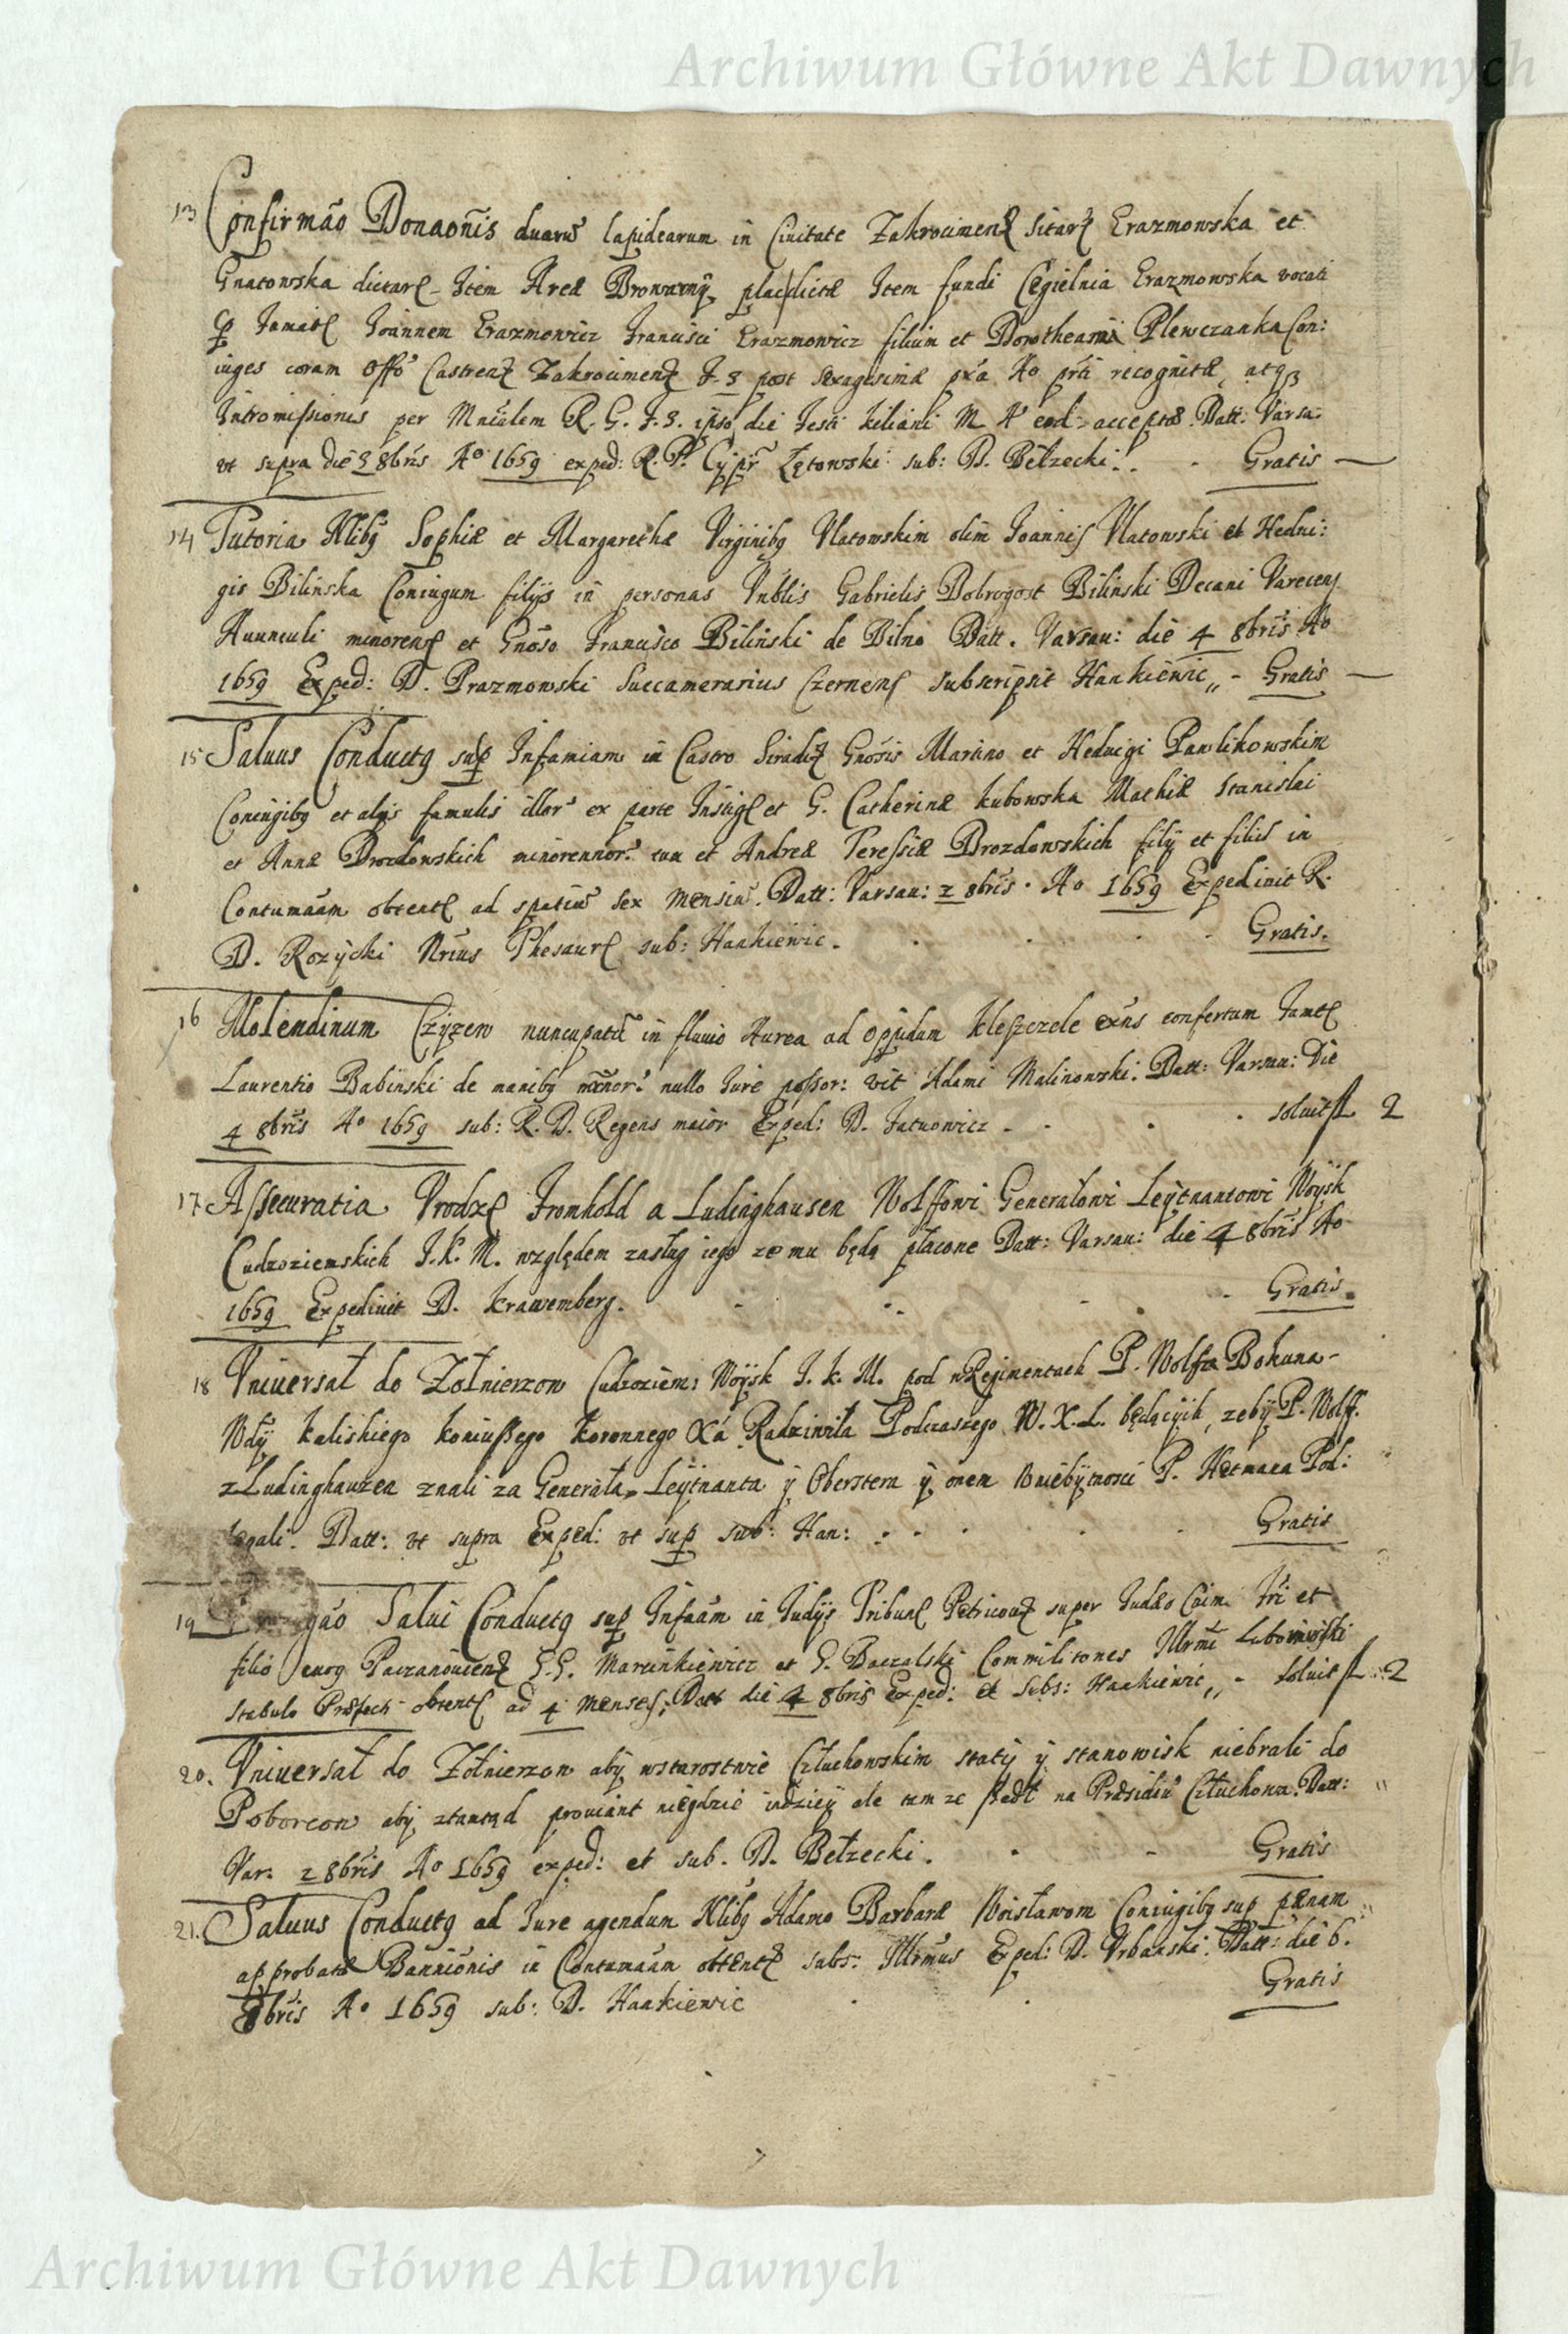 Archiwum Główne Akt Dawnych
13 Confirmão Donaõnis duarũ lapidearum in Ciuitate Zakrocimen sitar Erazmowska et
Gnatowska dictar Item Areæ Browarny placi dictæ Item fundi Cegielnia Erazmowska vocati
Joannem Erazmowicz Francisci Erazmowicz filium et Dorotheam Plewczanka Con:
iuges coram Offõ Castren Zakrocimen F. 3 post Sexagesimæ pxa Ao recognitæ, atq
Intromissionis per R. G. F. 3. ipso die Festi Kiliani M A eod: acceptæ. Datt: Varsa:
vt supra die 3 8bris Ao 1659 exped: R. P. Cypr Zętowski sub: D. Bełzecki. Gratis
14 Tutoria Nlibg Sophiæ et Margarethæ Virginibg Vlatowskim olim Joannis Vlatowski et Hedui:
gis Bilinska Coniugum filijs in personas Gabrielis Dobrogost Bilinski Decani Varecen
Auunculi minoren et Gnõso Francisco Bilinski de Bilno Datt. Varsau: die 4 8bris Ao
1659 Exped: D. Prazmowski Succamerarius Czernen subscripsit Hankiewic,, - Gratis
15 Saluus Conductg sup Infamiam in Castro Siradi Gnõsis Martino et Heduigi Pawlikowskim
Coniugibg et alijs famulis illor ex parte Instig et G. Catherinæ Kubowska Mathiæ Stanislai
et Annæ Drozdowskich minorennor. tum et Andreæ Teressiæ Drozdowskich filij et filis in
Contumãam obtent ad spatiũ sex mensiũ. Datt: Varsau: 2 8bris. Ao 1659 Expediuit R.
D. Rozycki Nrius Thesaur sub: Hankiewic. Gratis.
16 Molendinum Czyzew nuncupatũ in fluuio Aurea ad Oppidum Kleszczele exñs confertum
Laurentio Babinski de manibg nullo Iure possor: vti Adami Malinowski. Datt: Varsau: Die
4 8bris Ao 1659 sub: R. D. Regens maior Exped: D. Jatuowicz - soluit fl 2
17 Assecuratia Vrodz Fromhold a Ludinghausen Wolffowi Generałowi Leytnantowi Woysk
Cudzoziemskich J. K. M. względem zasług iego ze mu będą płacone Datt: Varsau: die 4 8bris Ao
1659 Expediuit D. Krawemberg. Gratis.
18 Vniuersał do Zołnierzow Cudzoziem: Woysk J. K. M. pod Regimentach P. Wolffa Bohuna-
Wdy kaliskiego koniuszego koronnego Xá Radziwiła Podczaszego W. X. L. będących, zeby P. Wolff.
z Ludinghauzen znali za Generała Leytnanta y Oberstera y onem w niebytnosci P. Hetmana Pol:
Datt: vt supra Exped: vt sup sub: Han: Gratis
19 gão Salui Conductg sup Infãam in Iudijs Tribun Petricou super Iudæo et
filio eiug Paczanouien G. G. Marcinkiewicz et G. Baczalski Commilitones Illrmi Lubomirski
Stabulo Præfecti obtent ad 4 menses, Datt die 4 8bris Exped: et subs: Hankiewic,, - soluit fl 2
20. Vniuersał do Zołnierzow aby w starostwie Człuchowskim statij y stanowisk niebrali do
Poborcow aby ztamtąd prouiant nigdzie indziey ale tam ze szedł na Præsidiũ Człuchowa. Datt:
Var. 2 8bris Ao 1659 exped: et sub. D. Bełzecki. Gratis
21. Saluus Conductg ad Iure agendum Nlibg Adamo Barbaræ Woisławom Coniugibg sup pænam
approbatæ Bannionis in Contumãam obtent subs: Illrmus Exped: D. Vrbanski. Datt: die 6.
8bris Ao 1659 sub: D. Hankiewic Gratis
Archiwum Główne Akt Dawnych